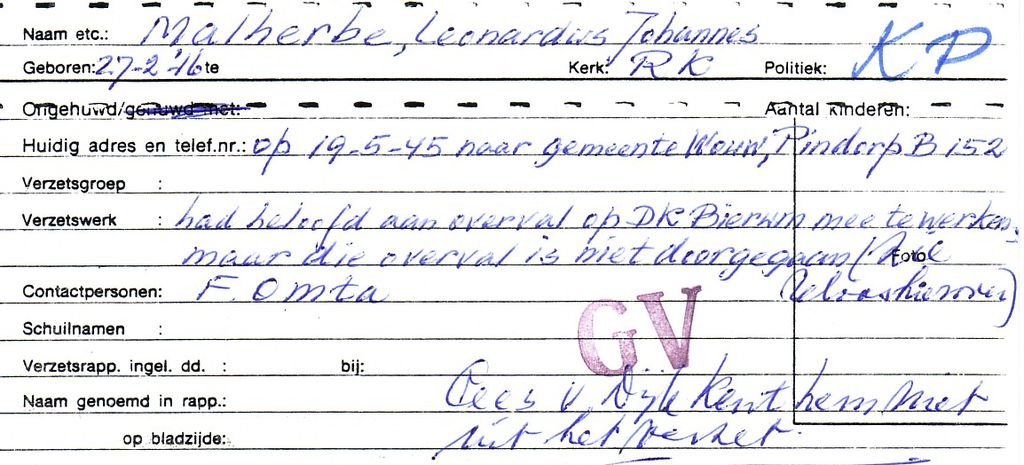 Naam etc.: Malherbe, Leonardus Johannes
Geboren: 27-2-'16 te Kerk: RK Politiek: KP
Ongehuwd/gehuwd met: Aantal kinderen:
Huidig adres en telef.nr.: op 19-5-45 naar gemeente Wouw, Pindorp B 152
Verzetsgroep :
Verzetswerk : had beloofd aan overval op DK Bierum mee te werken,
maar die overval is niet doorgegaan (
Foto
Contactpersonen: F. Omta hierover)
GV
Schuilnamen :
Verzetsrapp. ingel. dd. : bij:
Naam genoemd in rapp.: Cees v. Dijk kent hem niet
op bladzijde: uit het verzet.